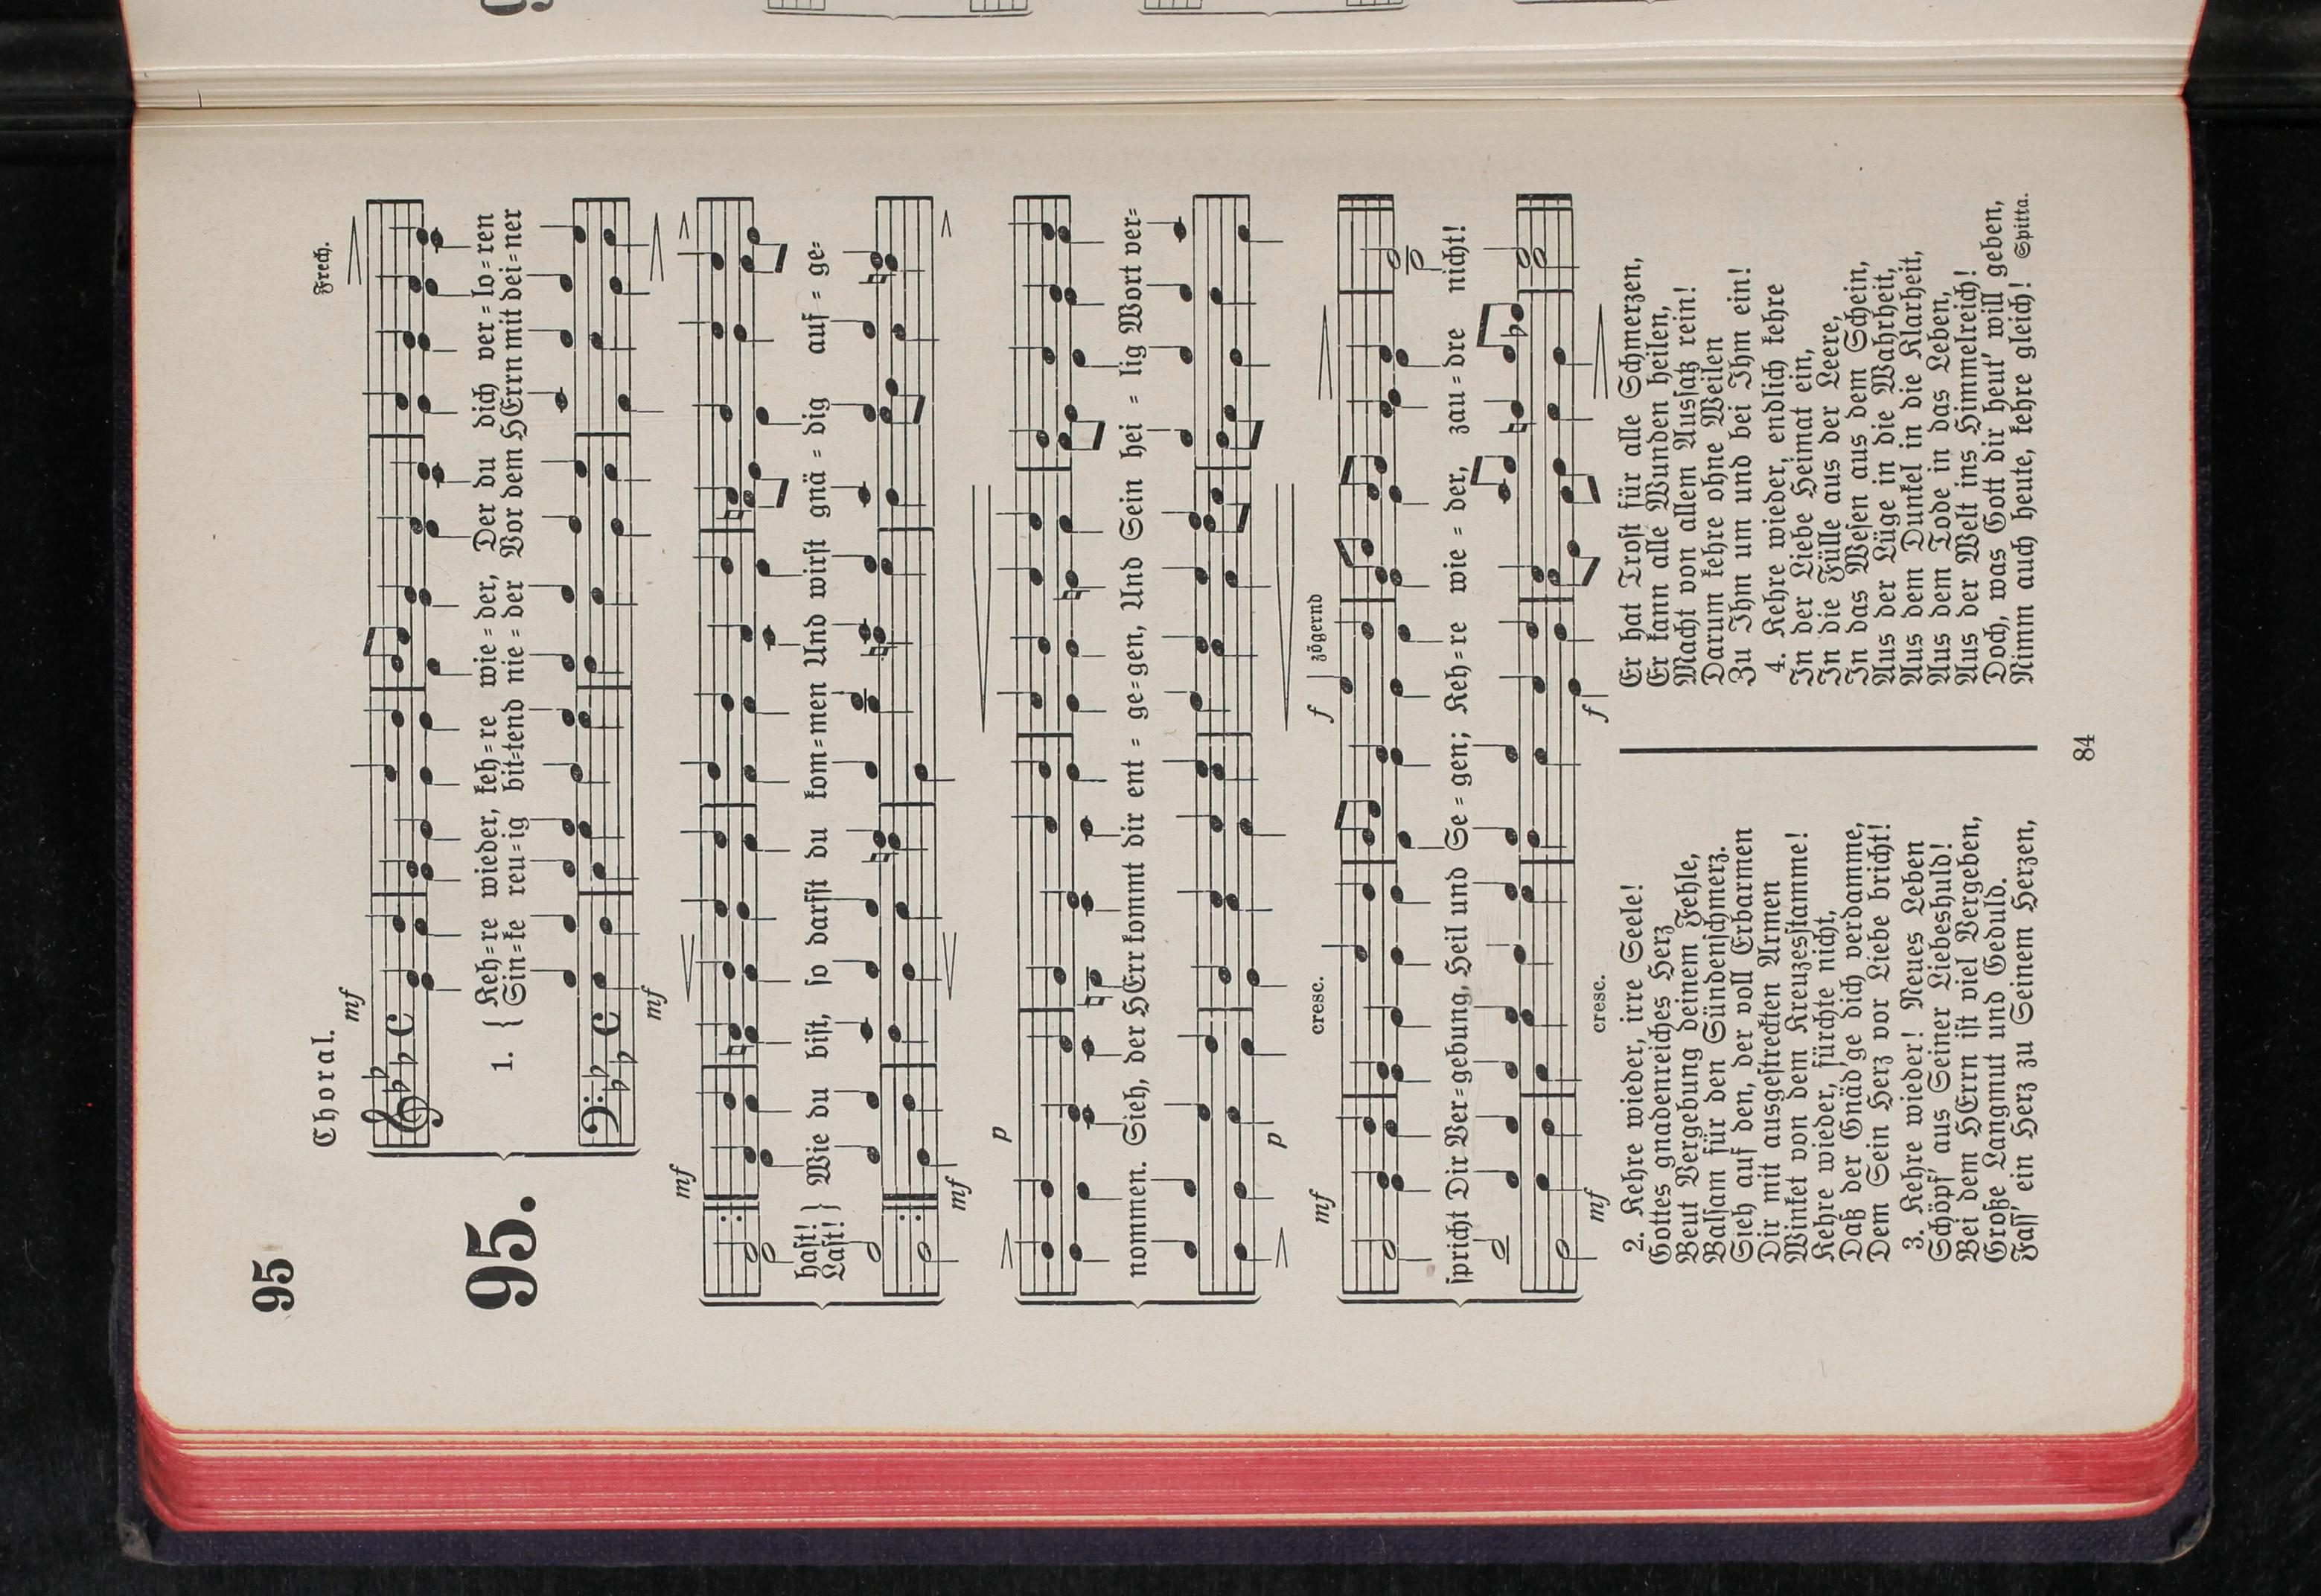 95
Choral.
Frech.
95.
mf
1. { Keh=re wieder, keh=re wie=der, Der du dich ver=lo=ren
{ Sin=ke reu=ig bit=tend nie=der Vor dem HErrn mit dei=ner
mf
mf
hast! } Wie du bist, so darfst du kom=men Und wirst gnä=dig auf=ge=
Last! }
mf
p
nommen. Sieh, der HErr kommt dir ent=ge=gen, Und Sein hei=lig Wort ver=
p
mf cresc. f zögernd
spricht Dir Ver=gebung, Heil und Se=gen; Keh=re wie=der, zau=dre nicht!
mf cresc. f
2. Kehre wieder, irre Seele!
Gottes gnadenreiches Herz
Beut Vergebung deinem Fehle,
Balsam für den Sündenschmerz.
Sieh auf den, der voll Erbarmen
Dir mit ausgestreckten Armen
Winket von dem Kreuzesstamme!
Kehre wieder, fürchte nicht,
Daß der Gnäd'ge dich verdamme,
Dem Sein Herz vor Liebe bricht!
3. Kehre wieder! Neues Leben
Schöpf' aus Seiner Liebeshuld!
Bei dem HErrn ist viel Vergeben,
Große Langmut und Geduld.
Fass' ein Herz zu Seinem Herzen,
Er hat Trost für alle Schmerzen,
Er kann alle Wunden heilen,
Macht von allem Aussatz rein!
Darum kehre ohne Weilen
Zu Ihm um und bei Ihm ein!
4. Kehre wieder, endlich kehre
In der Liebe Heimat ein,
In die Fülle aus der Leere,
In das Wesen aus dem Schein,
Aus der Lüge in die Wahrheit,
Aus dem Dunkel in die Klarheit,
Aus dem Tode in das Leben,
Aus der Welt ins Himmelreich!
Doch, was Gott dir heut' will geben,
Nimm auch heute, kehre gleich! Spitta.
84